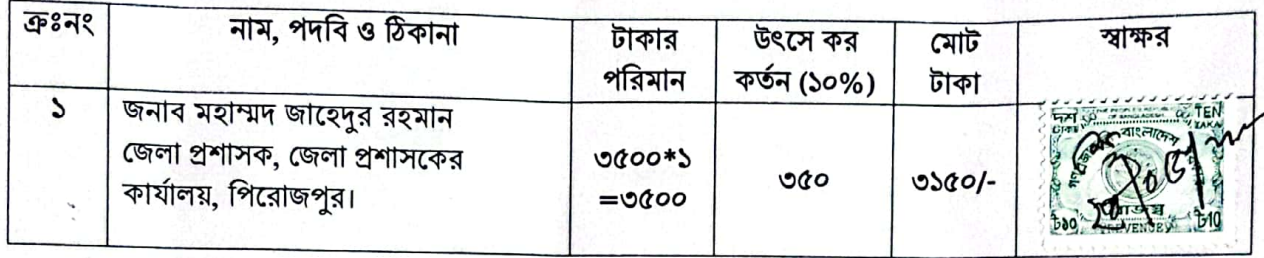 ক্রঃনং নাম, পদবি ও ঠিকানা টাকার পরিমান উৎসে কর কর্তন (১০%) মোট টাকা স্বাক্ষর
১ জনাব মহাম্মদ জাহেদুর রহমান
জেলা প্রশাসক, জেলা প্রশাসকের
কার্যালয়, পিরোজপুর।
৩৫০০*১
=৩৫০০
৩৫০
৩১৫০/-
দশ TEN
বাংলাদেশ
৳১০ REVENUE ৳10